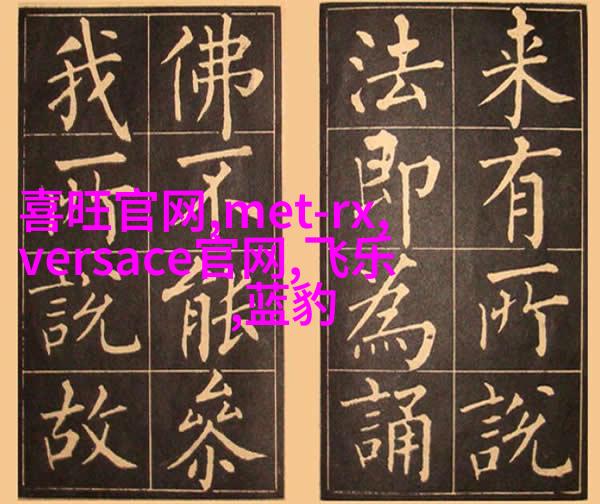 来有所說
法即為誦
佛不能參
我所說故
喜旺官网,met-rx,
versace官网,飞乐
,蓝豹